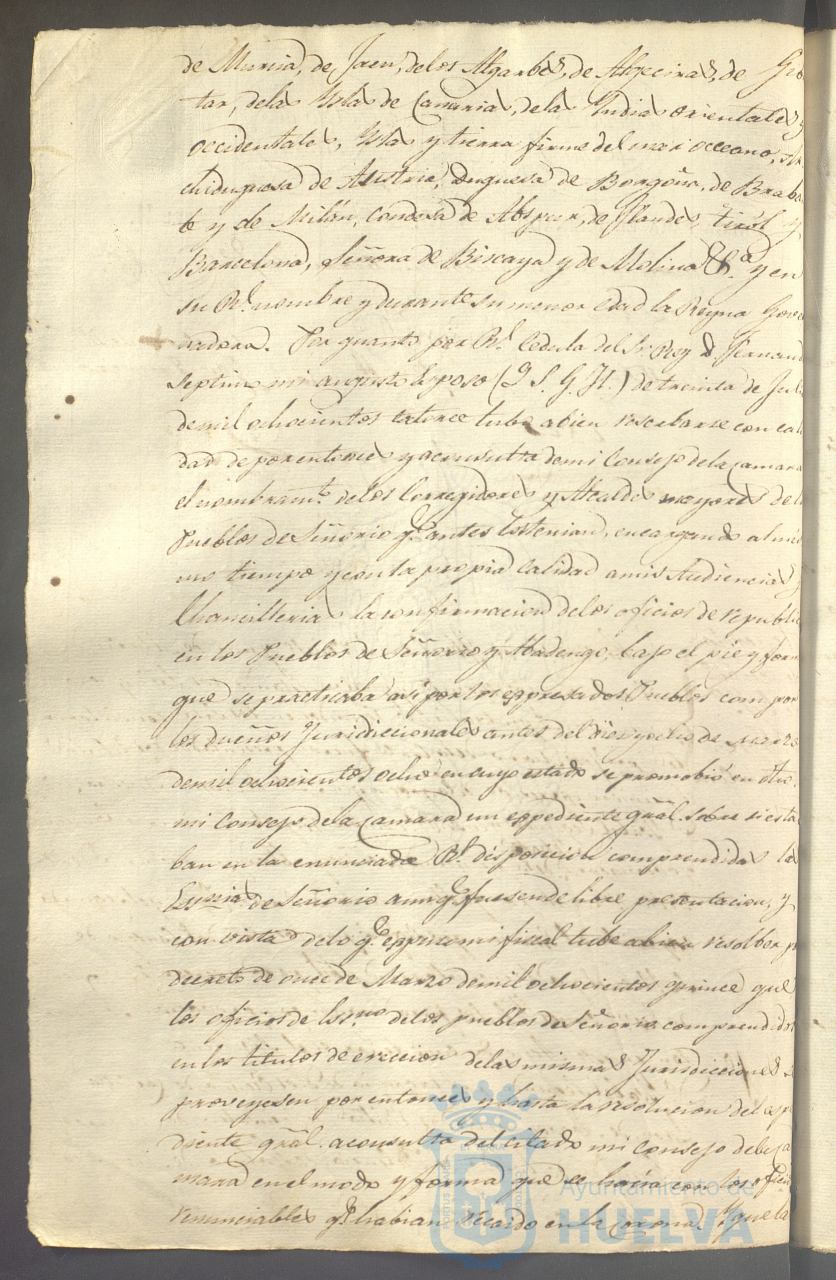 de Murcia, de Jaen, de los Algarbes, de Algeciras, de
tar, de las Yslas de Canaria, de las Yndias orientales y
occidentales, Yslas y tierra firme del mar occeano,
chiduquesa de Austria, Duquesa de Borgoña, de Braban
te y de Milan, Condesa de Abspur, de Flandes, Tirol y
Barcelona, Señora de Biscaya y de Molina &.ª y en
su Rl. nombre y durante su menor edad la Reyna Gover
nadora. Por quanto por Rl. Cedula del Sr. Rey D. Fernando
Septimo mi augusto Esposo (Q. S. G. H.) de treinta de Jul
de mil ochocientos catorce tube a bien reserbarse con cali
dad de por entonces y a consulta de mi Consejo de la Camara
el nombramto. de los Corregidores y Alcaldes mayores de l
Pueblos de Señorio q.e antes los tenian, encargando al mis
mo tiempo y con la propia calidad a mis Audiencias y
Chancillerias la confirmacion de los oficios de republi
en los Pueblos de Señorio y Abadengo, bajo el pie y form
que se practicaba asi por los espresados Pueblos com por
los dueños Juridiccionales antes del diez y ocho de marzo
de mil ochocientos ocho: en cuyo estado se promobió en dho.
mi Consejo de la Camara un espediente gral. sobre si esta
ban en la enunciada Rl. disposicion comprendidas las
de Señorio aunq.e fuesen de libre presentacion, y
con vista de lo q.e espuso mi fiscal tube a bien resolber p
decreto de once de Marzo de mil ochocientos quince que
los oficios de Essno. de los pueblos de Señorio comprendidos
en los titulos de ereccion de las mismas Juridicciones s
proveyesen por entonces y hasta la resolucion del espe
diente gral. a consulta del citado mi Consejo de la Ca
mara en el modo y forma que se hacia con los oficios
renunciables q.e habian recaido en la corona. Y que la
Ayuntamiento de
HUELVA